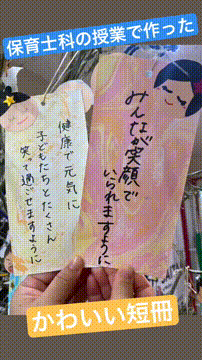 保育士科の授業で作った
みんなが笑顔で
いられますように
健康で元気に
子どもたちとたくさん
笑って過ごせますように
かわいい短冊